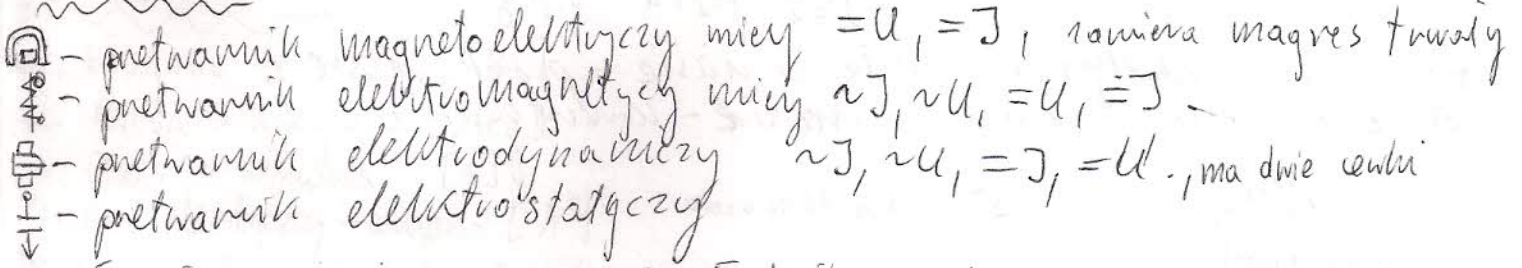 - przetwarnik magnetoelektryczy mierzy =U, =J, zawiera magnes trwały
- przetwarnik elektromagnetyczy mierzy ~J, ~U, =U, =J
- przetwarnik elektrodynamiczy ~J, ~U, =J, =U., ma dwie cewki
- przetwarnik elektrostatyczy